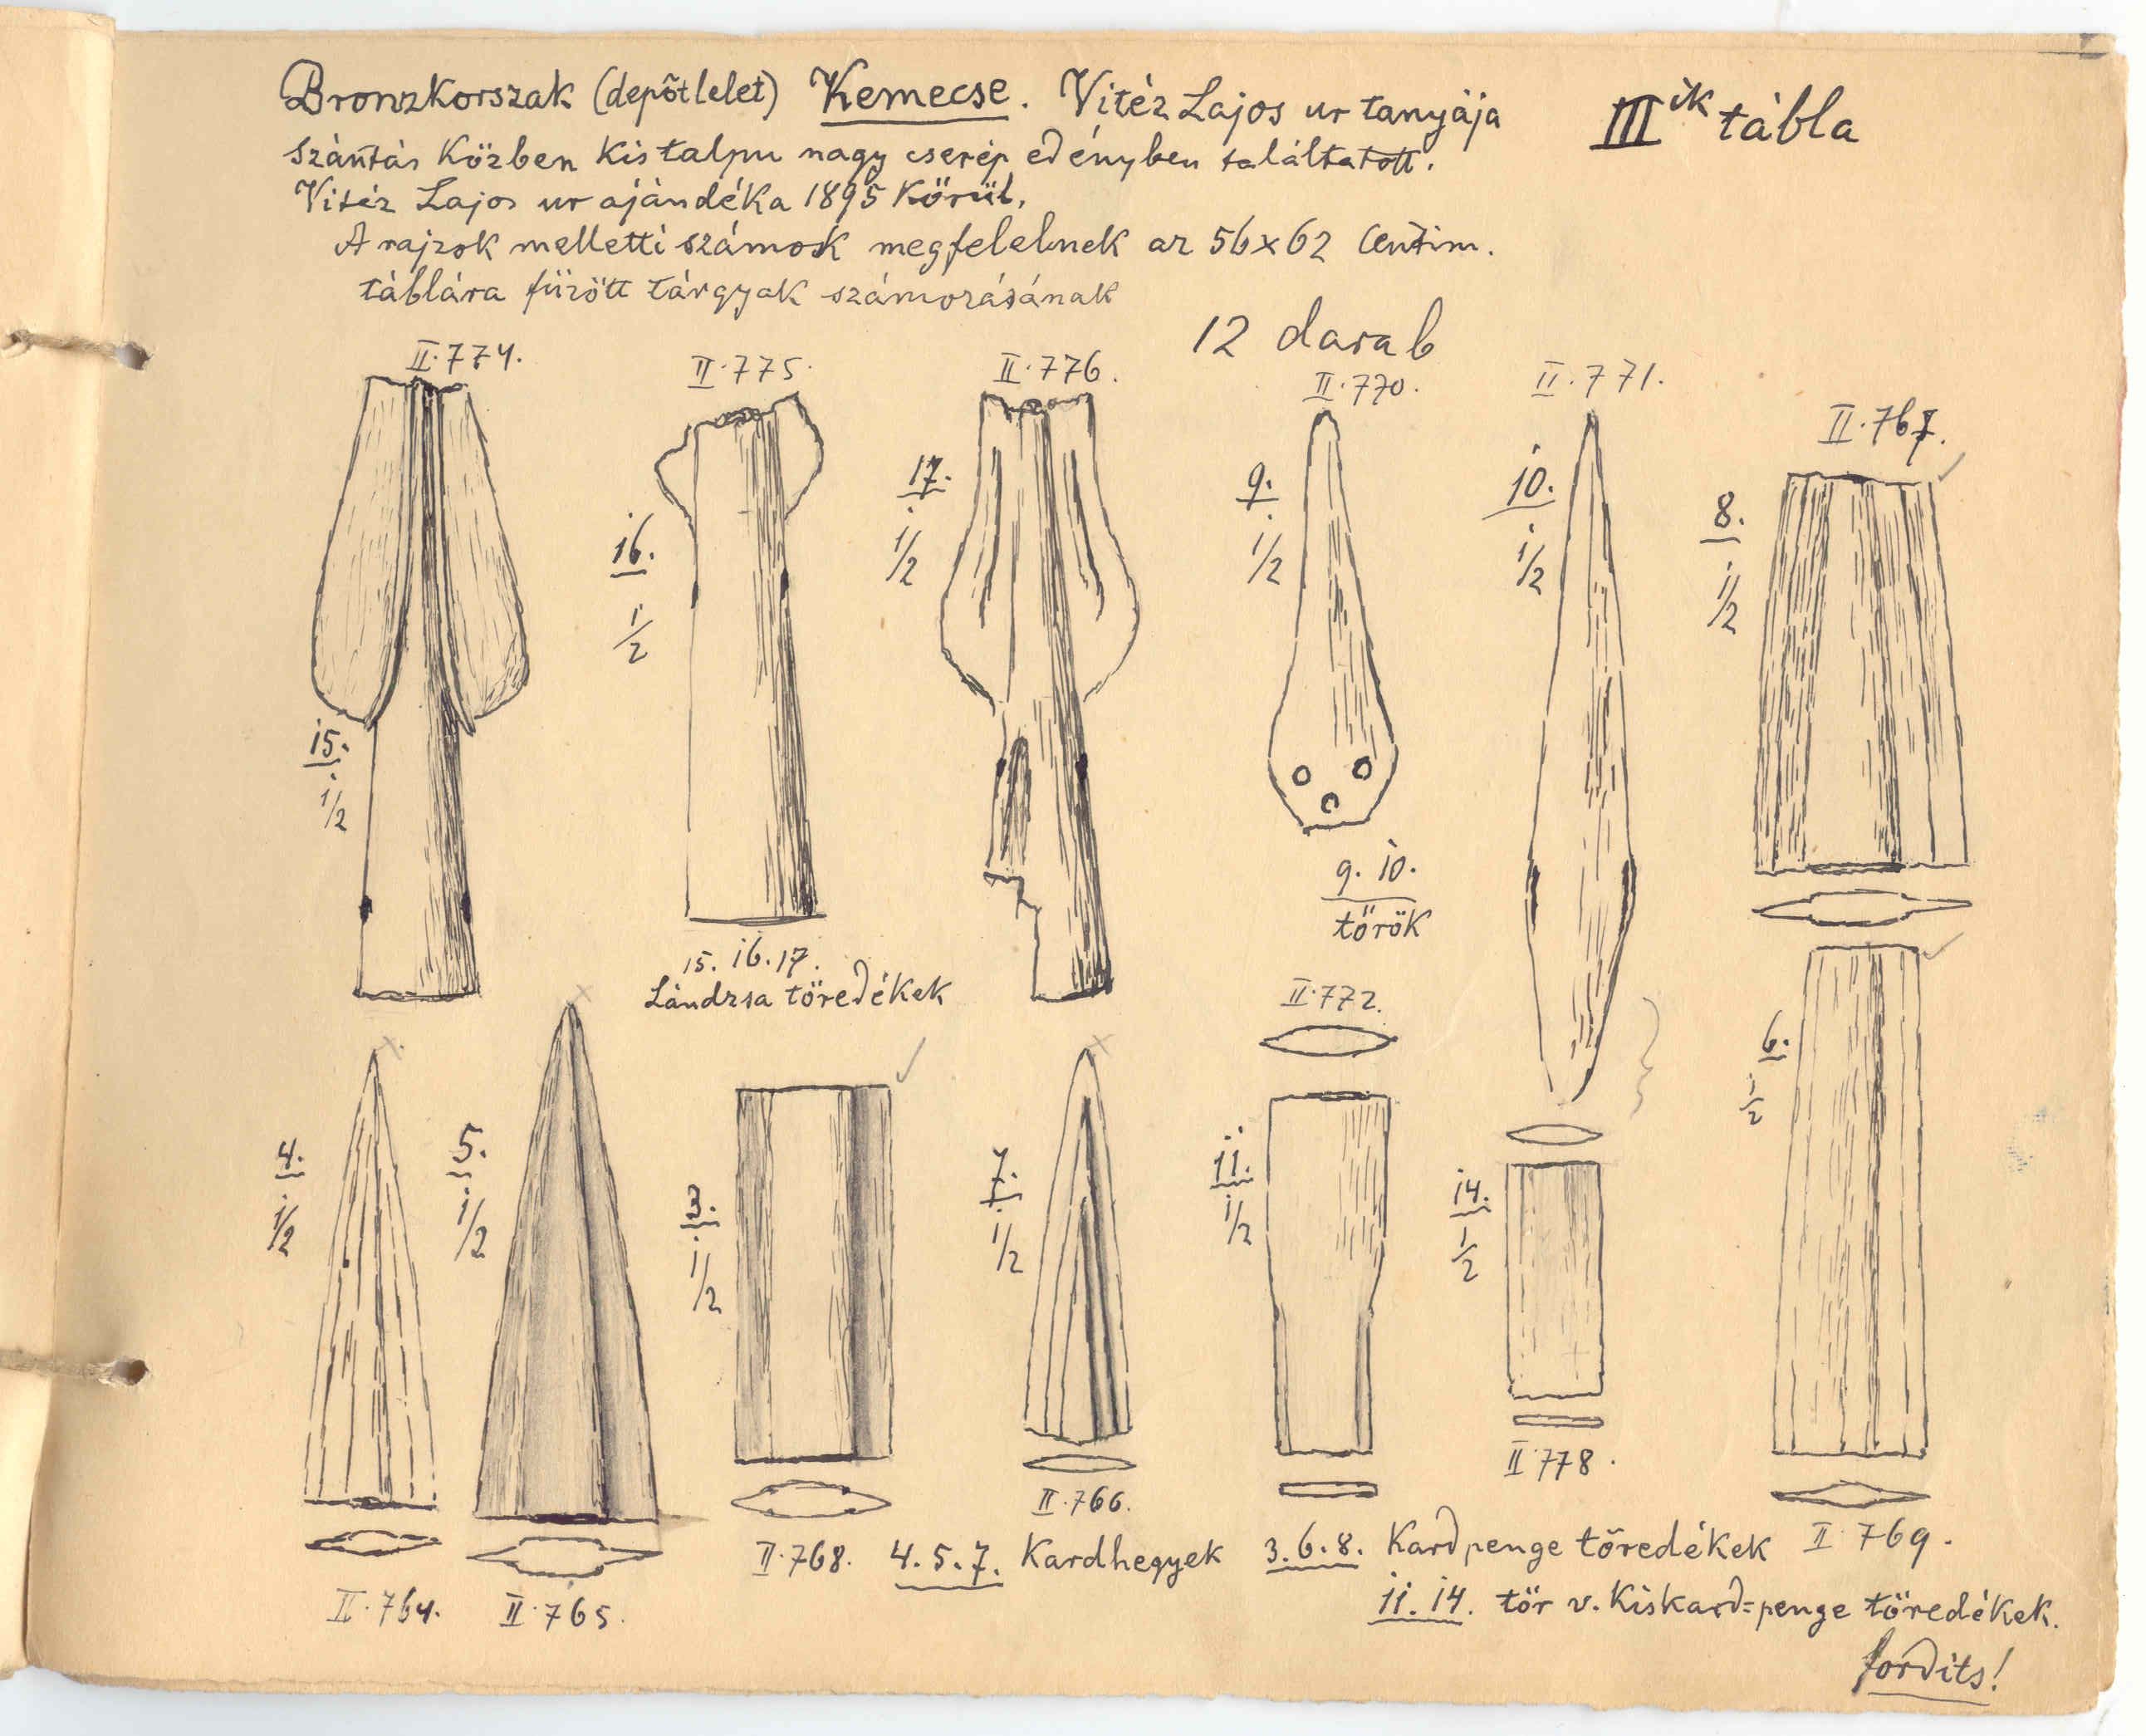 Bronzkorszak (depôtlelet) Kemecse. Vitéz Lajos ur tanyája
IIIik tábla
szántás közben kis talpu nagy cserép edényben találtatott.
Vitéz Lajos ur ajándéka 1895 körül.
A rajzok melletti számok megfelelnek az 56x62 Centim.
táblára füzött tárgyak számozásának
12 darab
II.774.
II.775.
II.776.
II.770.
II.771.
II.767.
17.
1/2
9.
1/2
10.
1/2
8.
1/2
16.
1/2
15.
1/2
9. 10.
törők
15. 16. 17.
Lándzsa töredékek
II.772.
6.
1/2
4.
1/2
5.
1/2
3.
1/2
7.
1/2
11.
1/2
14.
1/2
II.778.
II.766.
II.768. 4.5.7. Kardhegyek 3.6.8. Kardpenge töredékek II.769.
II.764. II.765. 11. 14. tör v. Kiskard=penge töredékek.
fordits!